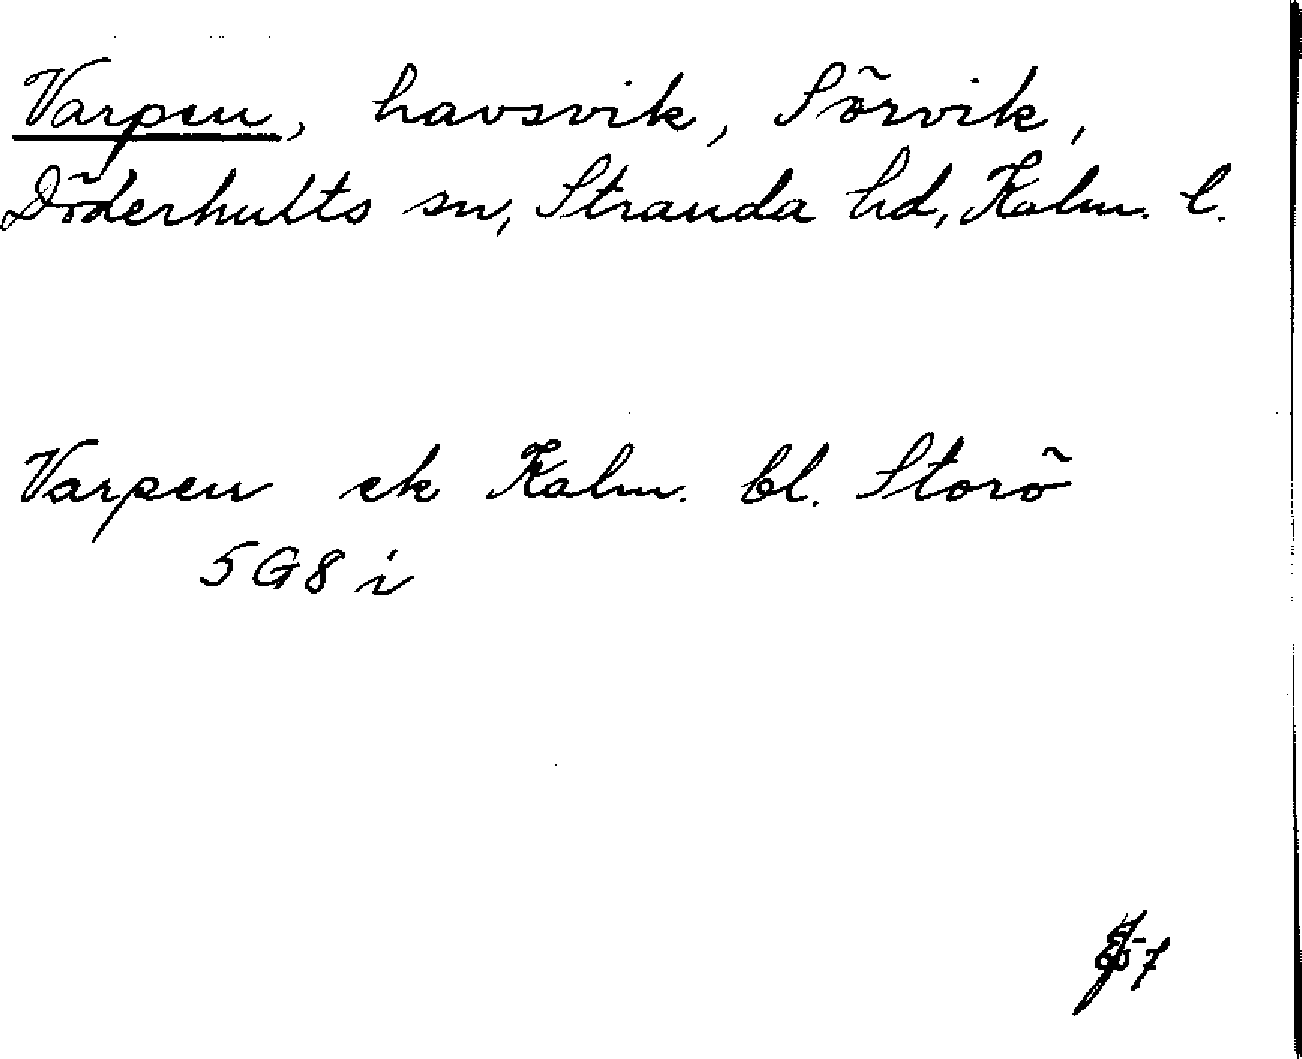 Varpen, havsvik, Sörvik,
Döderhults sn, Stranda hd, Kalm. l.
Varpen ek Kalm. bl. Storö
5G8 i
57